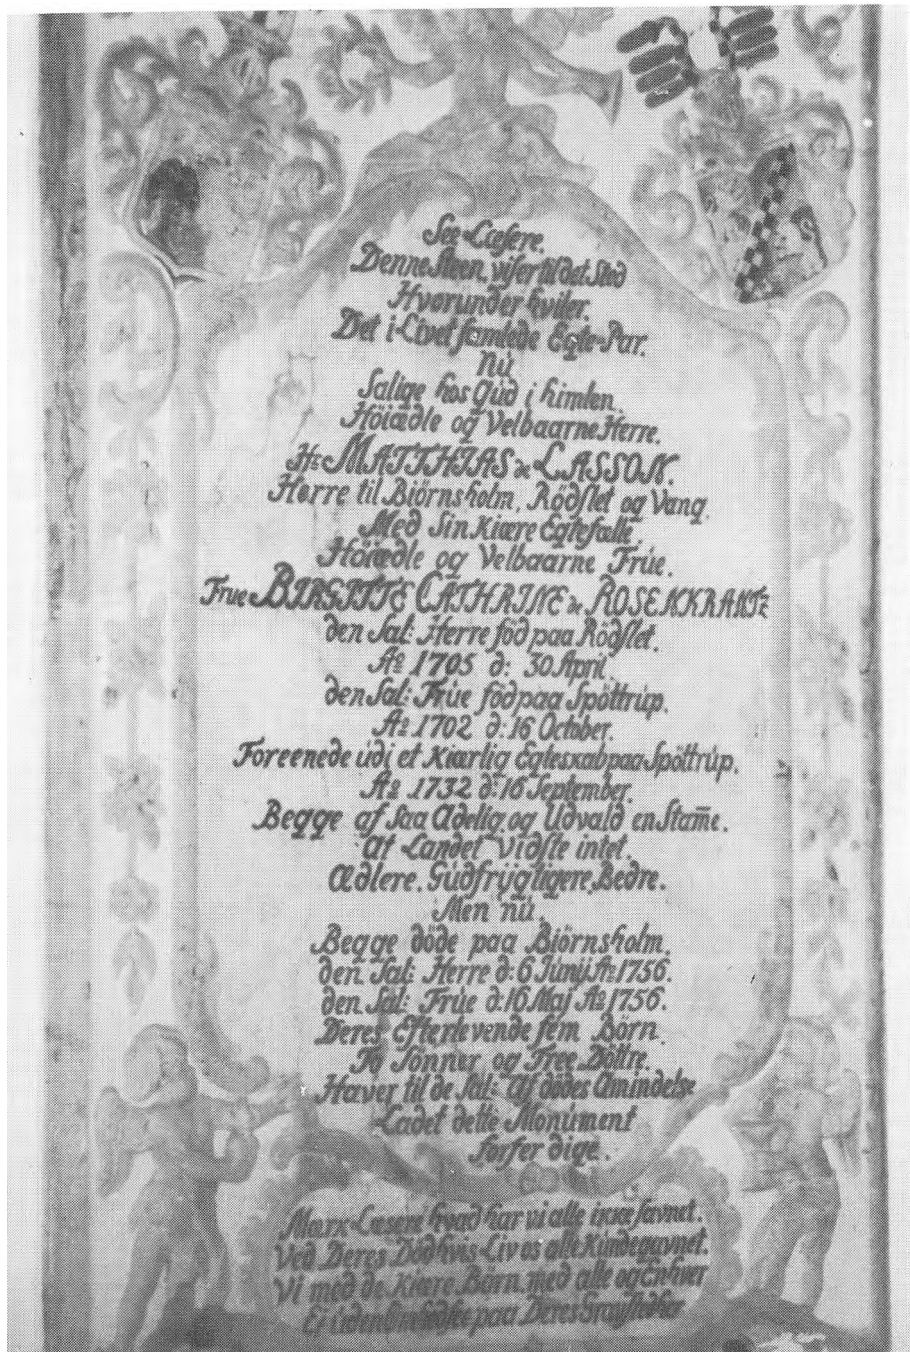 See Læsere.
Denne Steen, viser til det Sted
Hvorunder hviler.
Det i Livet samlede Egte-Par.
Nú
Salige hos Gúd i himlen.
Höiædle og Velbaarne Herre.
Hr: MATTHIAS de LASSON.
Herre til Biörnsholm, Rödslet og Vang.
Med Sin Kiære Egtefalle.
Höiædle og Velbaarne Frúe.
Frue BIRGITTE CATHRINE de ROSENKRANTZ
den Sal: Herre föd paa Rödslet.
Ao 1705 d: 30 April.
den Sal: Frúe föd paa Spöttrúp.
Ao 1702 d: 16 October.
Foreenede údi et Kiærlig Egteskab paa Spöttrúp.
Ao 1732 d: 16 September.
Begge af Saa Adelig og Udvald en Stam̄e.
At Landet Vidste intet.
Ædlere. Gúdfrÿgtigere, Bedre.
Men nú.
Begge döde paa Biörnsholm.
den Sal: Herre d: 6 Júnij Ao 1756.
den Sal: Frúe d: 16 Maj Ao 1756.
Deres Efterlevende fem Börn.
To Sönner og Tree Döttre.
Haver til de Sal: Afdödes Amindelse
Ladet dette Monúment
forferdige.
Mærk Læsere hvad har vi alle ikke savnet.
Ved Deres Död hvis Liv os alle Kúnde gavnet.
Vi med de Kiære Börn med alle og Enhver
Ei úden paa Deres